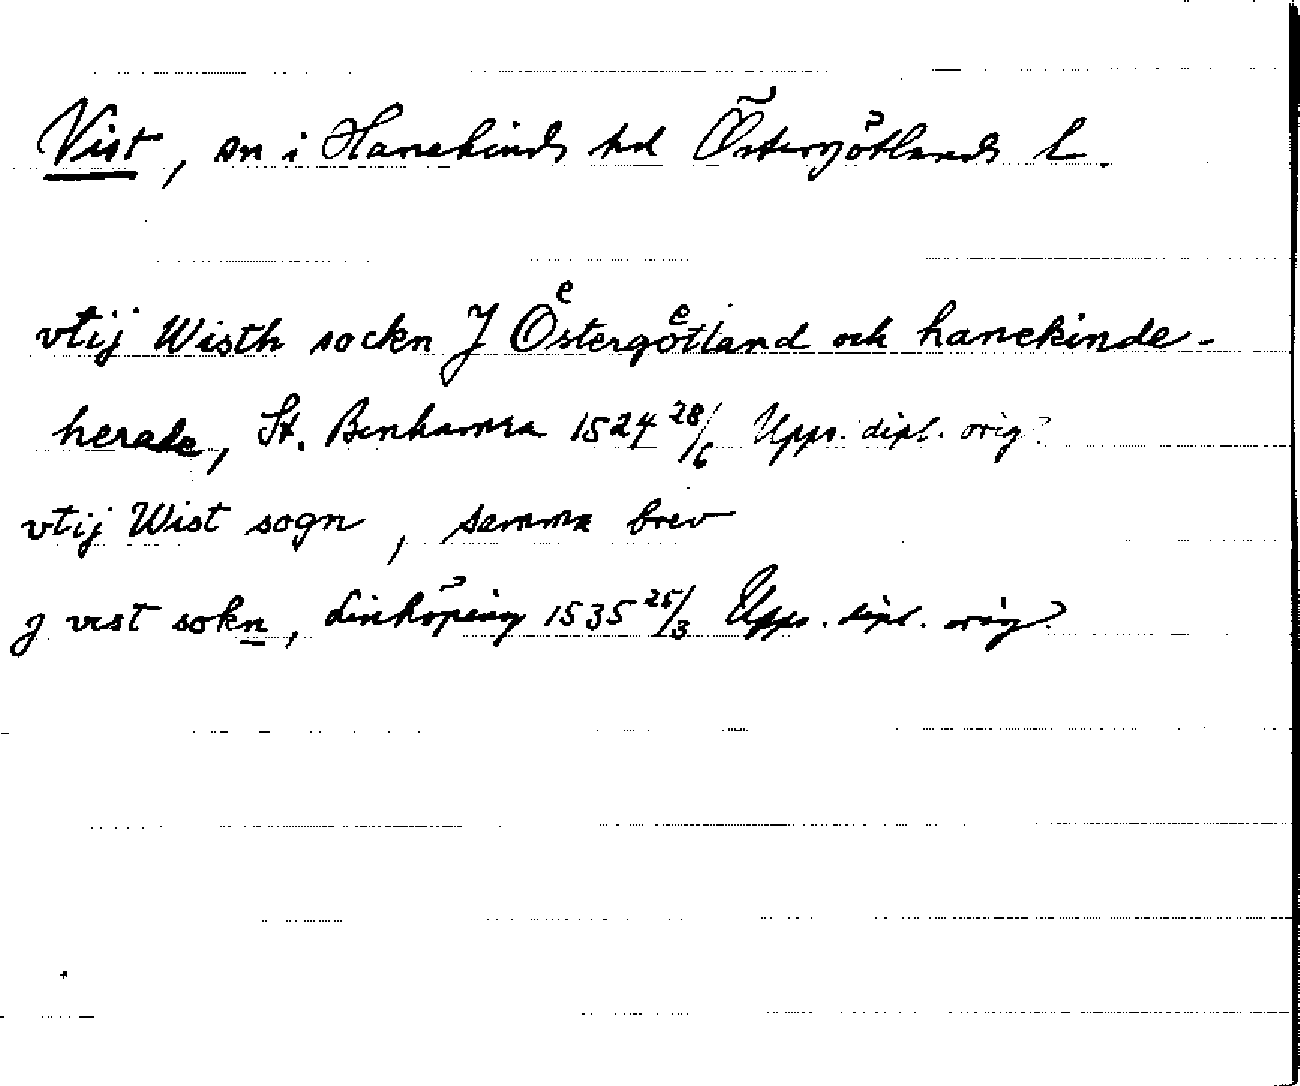 Vist, sn i Hanekinds hd Östergötlands l.
vtij Wisth sockn J Oͤstergoͤtland och hanekinde-
herade, St. Benhamra 1524 28/6 Upps. dipl. orig.
vtij Wist sogn, samma brev
j vist sokn, Linköping 1535 25/3 Upps. dipl. orig.